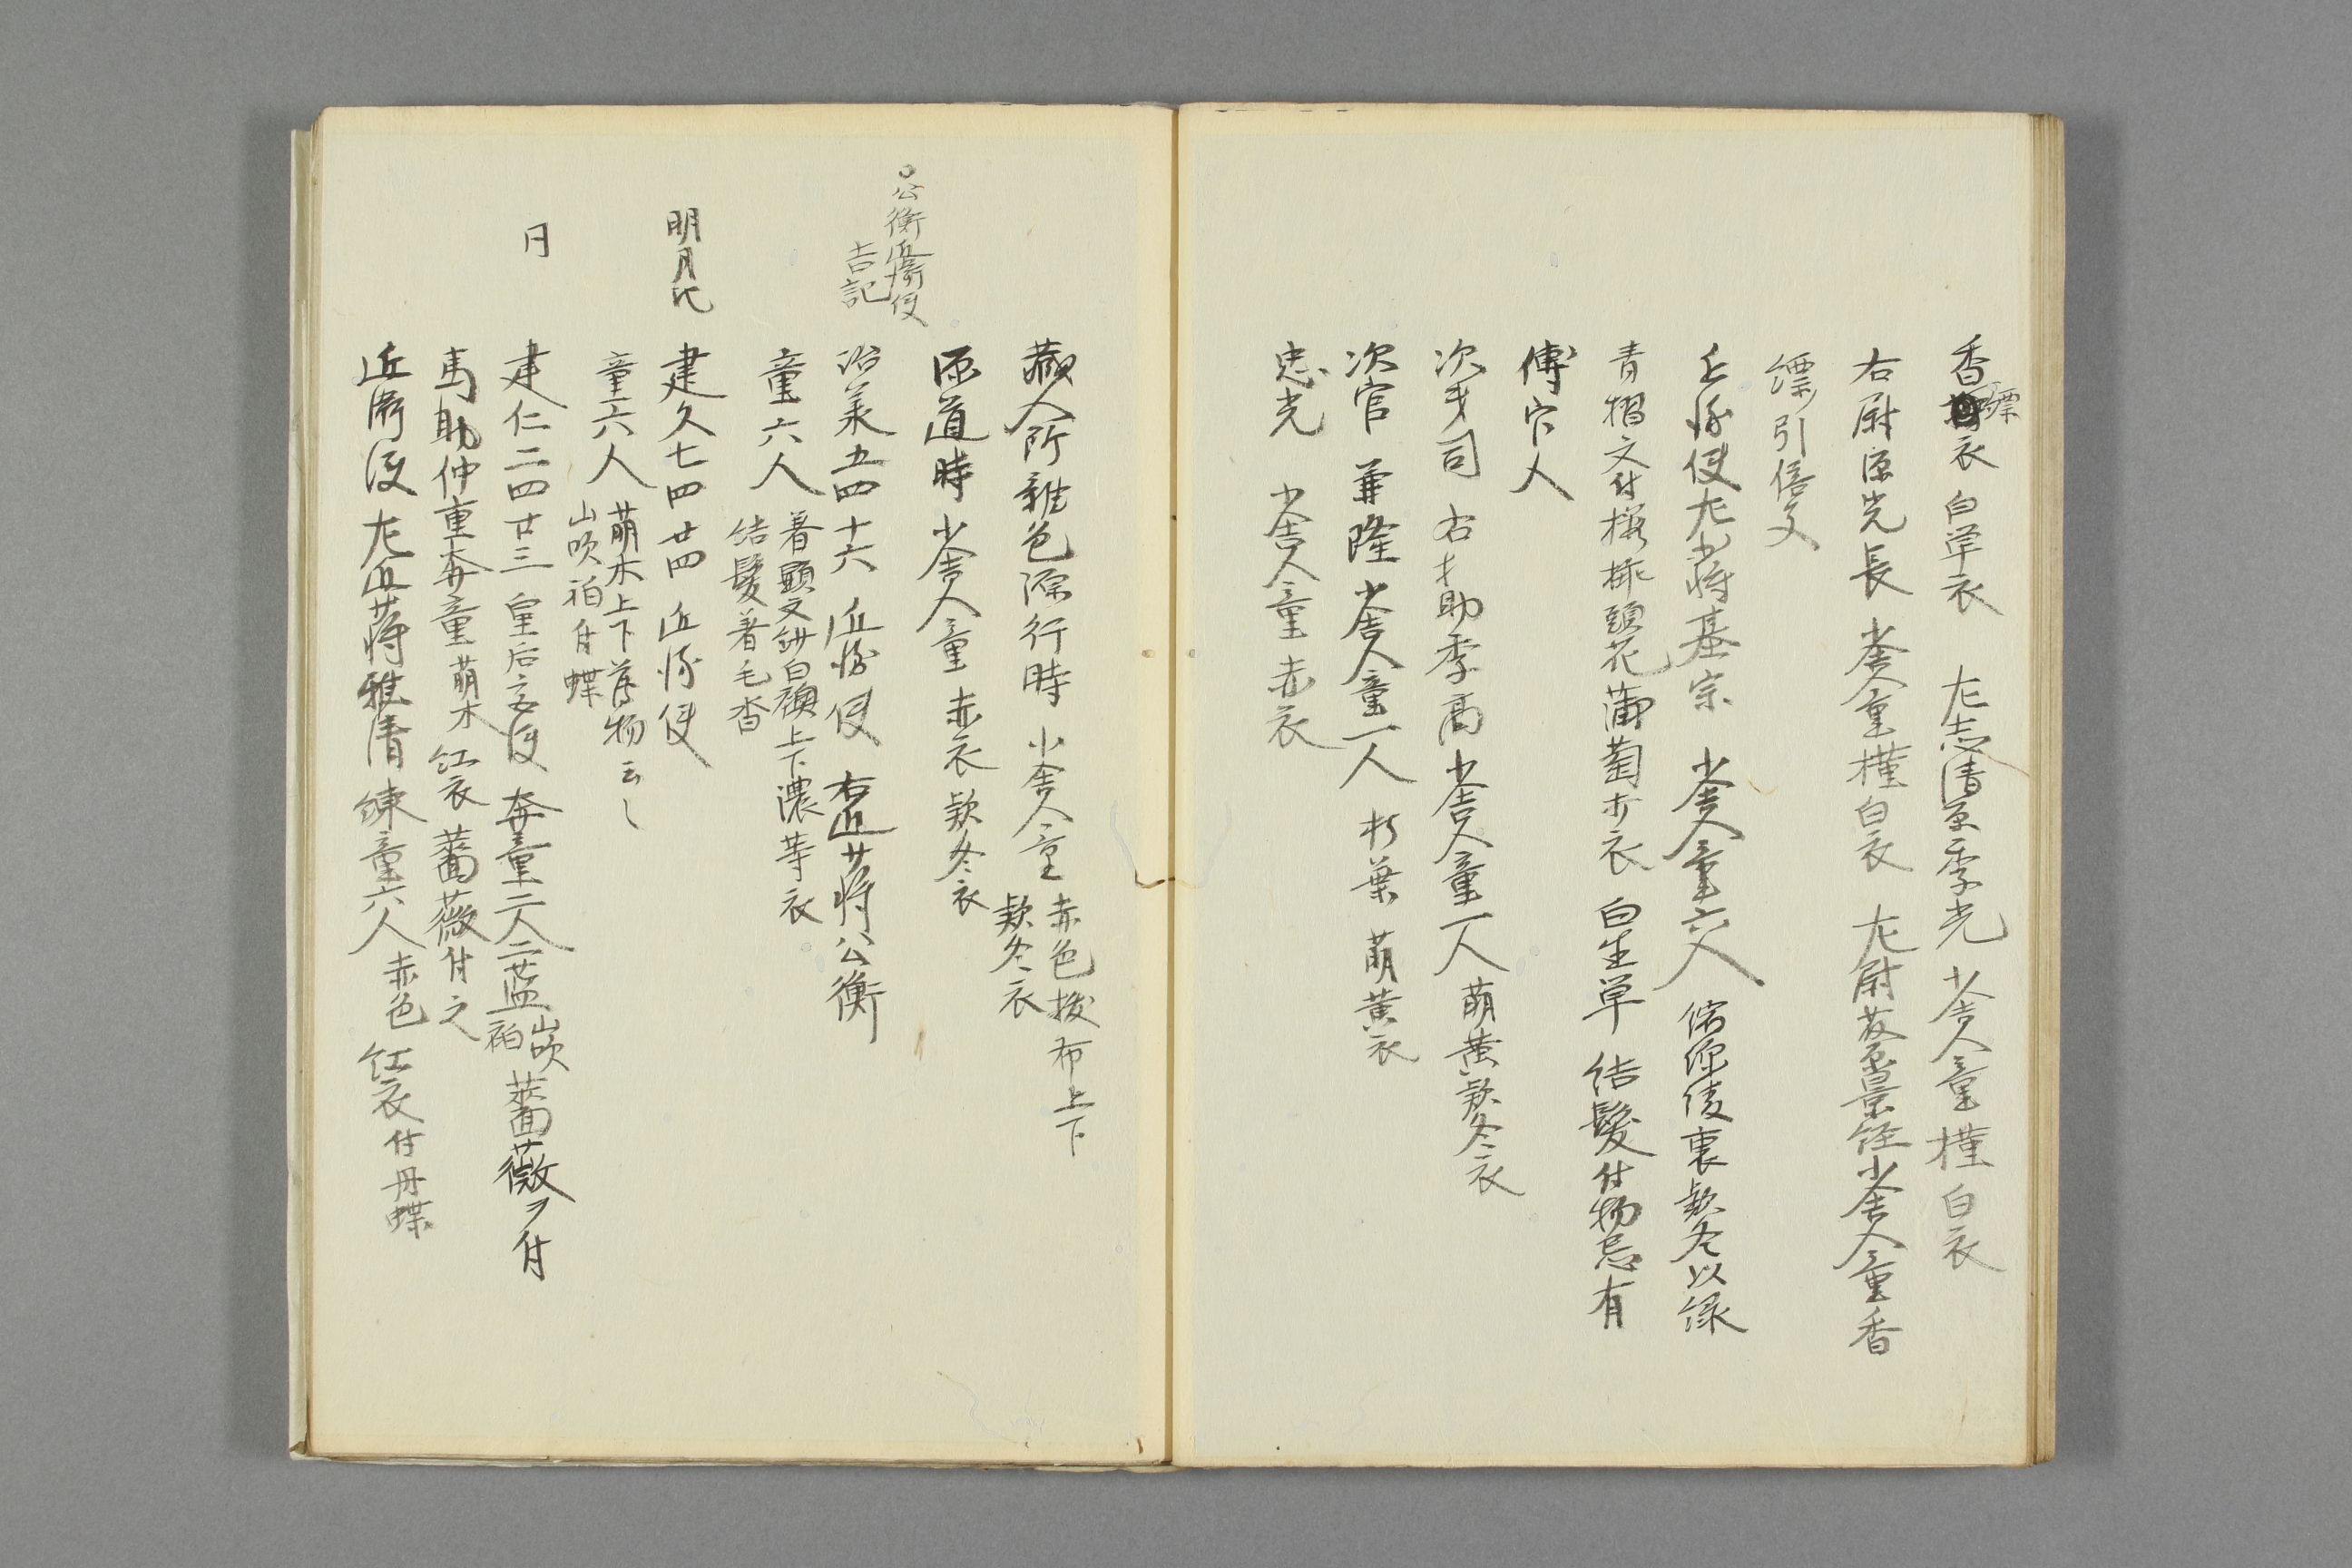 香縹衣 白単衣 左志清原季光 小舎人童 槿 白衣
右尉源光長 小舎人童 槿 白衣 左尉藤原景経 小舎人童 香
縹引倍文
近衛使左少将基宗 小舎人童六人 裏款冬以緑
青摺文付 頭花 蒲萄打衣 白生単 結髪付物忌有
傅官人
次才司 右才助季高 小舎人童一人 萌黄 款冬衣
次官 兼隆 小舎人童一人 朽葉 萌黄衣
忠光 小舎人童 赤衣
蔵人所雑色源行時 小舎人童 赤色 布上下 款冬衣
源道時 小舎人童 赤衣 款冬衣
○公衡近衛使
吉記
治美五四十六 近衛使 右近少将公衡
童六人 着顕文紗白襖上下濃蒡衣
結髪着毛沓
明月記
建久七四廿四 近衛使
童六人 萌木上下 薄物云々
山吹衵付蝶
同
建仁二四廿三 皇后宮使 舞童二人 二藍 山吹衵 薔薇ヲ付
馬助仲重舞童 萌木 紅衣 薔薇付之
近衛使 左近少将雅清 練童六人 赤色 紅衣 付丹蝶